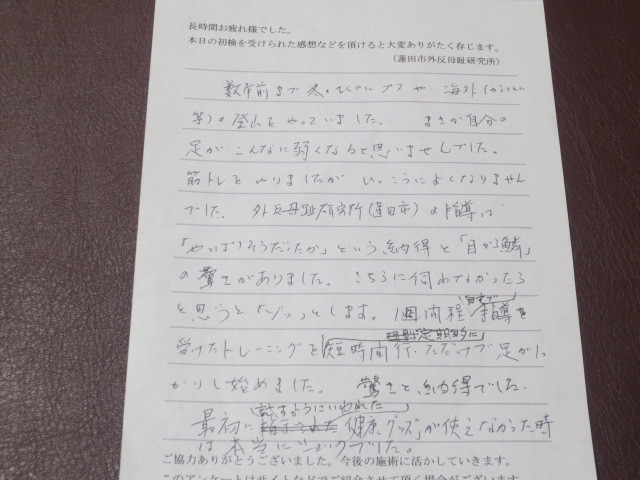 長時間お疲れ様でした。
本日の初検を受けられた感想などを頂けると大変ありがたく存じます。
(蓮田市外反母趾研究所)
数年前まで冬の アルプスや 海外
等)の登山をやっていました。 まさか自分の
足がこんなに弱くなると思いませんでした。
筋トレもやりましたがいっこうによくなりません
でした。 外反母趾研究所(蓮田市)の指導は
「やっぱりそうだったか」という納得と「目から鱗」
の驚きがありました。 こちらに伺わなかったら
と思うと「ゾッ」とします。 1週間程 自宅で 指導を
受けたトレーニングを 短時間行っただけで足がしっ
かりし始めました。 驚きと納得でした。
最初に 試すようにいわれた 「健康グッズ」が使えなかった時
は本当にショックでした。
ご協力ありがとうございました。今後の施術に活かしていきます。
このアンケートはサイトなどでご紹介させて頂く場合がございます